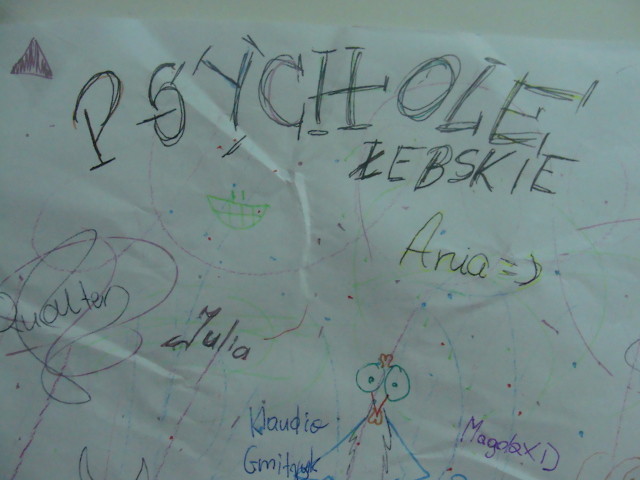 PSYCHOLE
ŁEBSKIE
Ania =)
Qualter
Julia
Klaudia
Magda XD